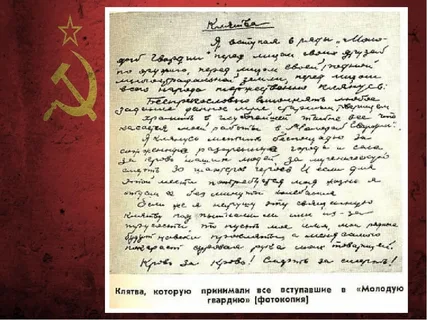 Клятва
Я вступая в ряды „Моло-
дой Гвардии" перед лицом своих друзей
по оружию, перед лицом своей родной
многострадальной земли, перед лицом
всего народа торжественно клянусь:
Беспрекословно выполнять любое
задание данное мне старшим товарищем
хранить в глубочайшей тайне все что
касается моей работы в „Молодой Гвардии".
Я клянусь мстить беспощадно за
сожженные разоренные города и села
за кровь наших людей, за мученическую
смерть 30 шахтеров героев И если для
этой мести потребуется моя жизнь я
отдам ее без минуты колебания
Если же я нарушу эту священную
клятву под пытками или из-за
трусости то пусть мое имя, мои родные
будут навеки прокляты а меня самого
покарает суровая рука моих товарищей.
Кровь за Кровь! Смерть за смерть!
Клятва, которую принимали все вступавшие в «Молодую
гвардию» [фотокопия]